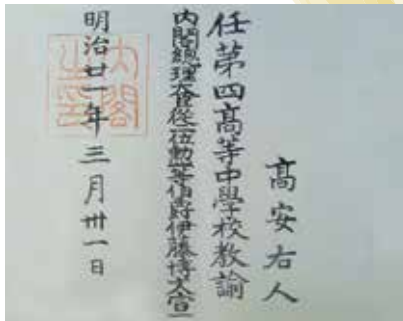 高安右人
任第四高等中學校教諭
內閣總理大臣從二位勲一等伯爵伊藤博文宣
明治廿一年三月卅一日
內閣之印